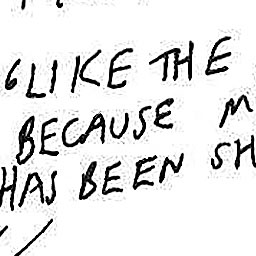 "LIKE THE
BECAUSE M
HAS BEEN SH